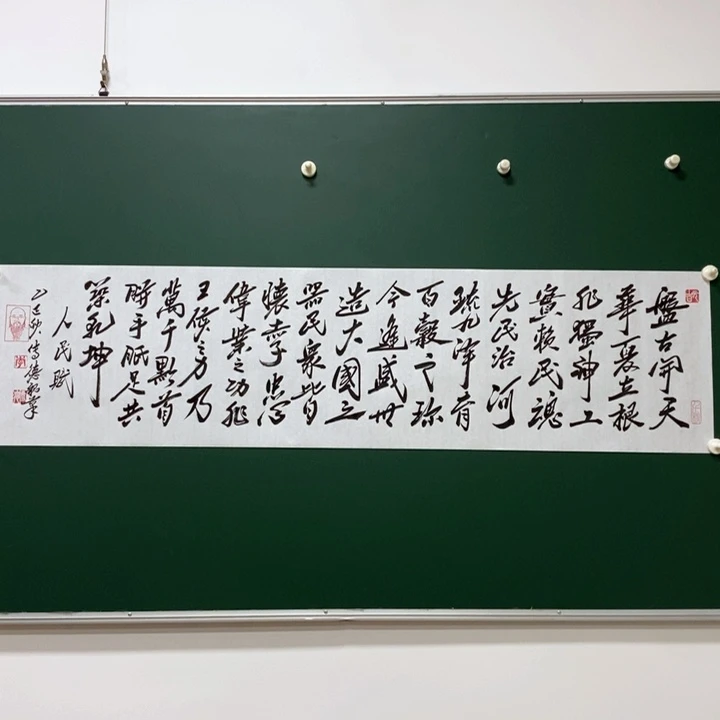 盤古開天
華夏立根
非獨神工
實賴民魂
先民治河
疏九澤育
百穀之珍
今逢盛世
造大國之
器民衆皆
懷忠
偉業之功非
王侯之力乃
萬千黔首
胼手胝足共
築乾坤
人民賦
乙巳秋傅德